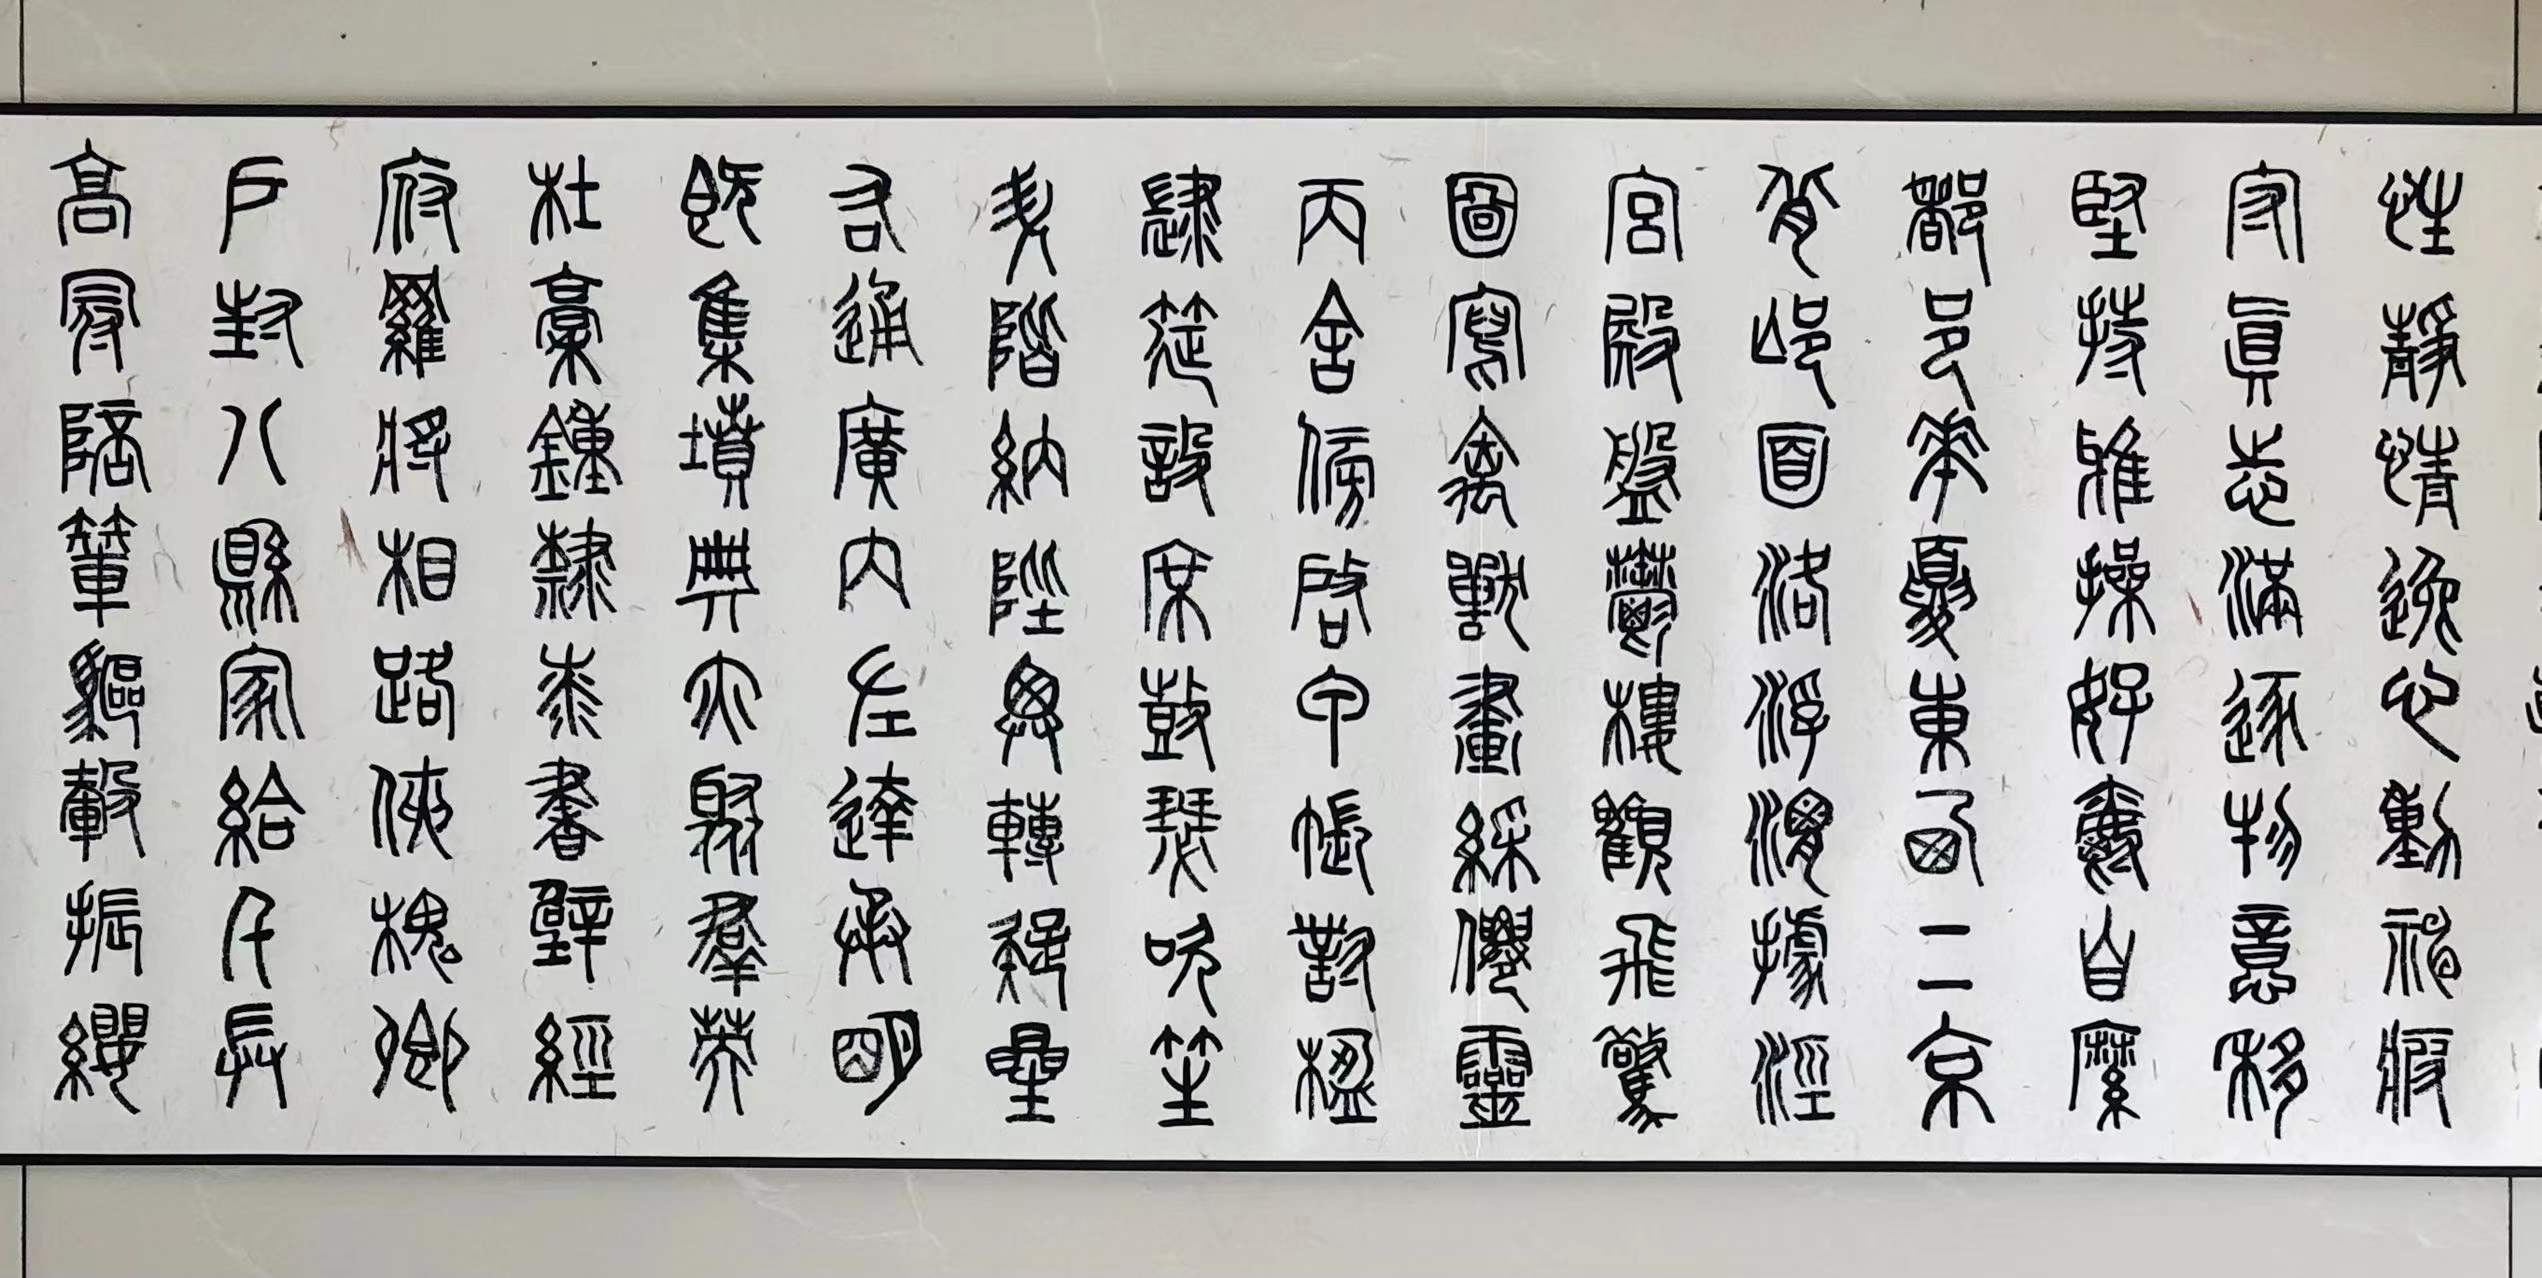 性靜情逸心動神疲
守真志滿逐物意移
堅持雅操好爵自縻
都邑華夏東西二京
背邙面洛浮渭據涇
宮殿盤鬱樓觀飛驚
圖寫禽獸畫綵僊靈
丙舍傍啓甲帳對楹
肆筵設席鼓瑟吹笙
升階納陛弁轉疑星
右通廣內左達承明
既集墳典亦聚群英
杜稾鍾隸漆書壁經
府羅將相路俠槐卿
戶封八縣家給千兵
高冠陪輦驅轂振纓